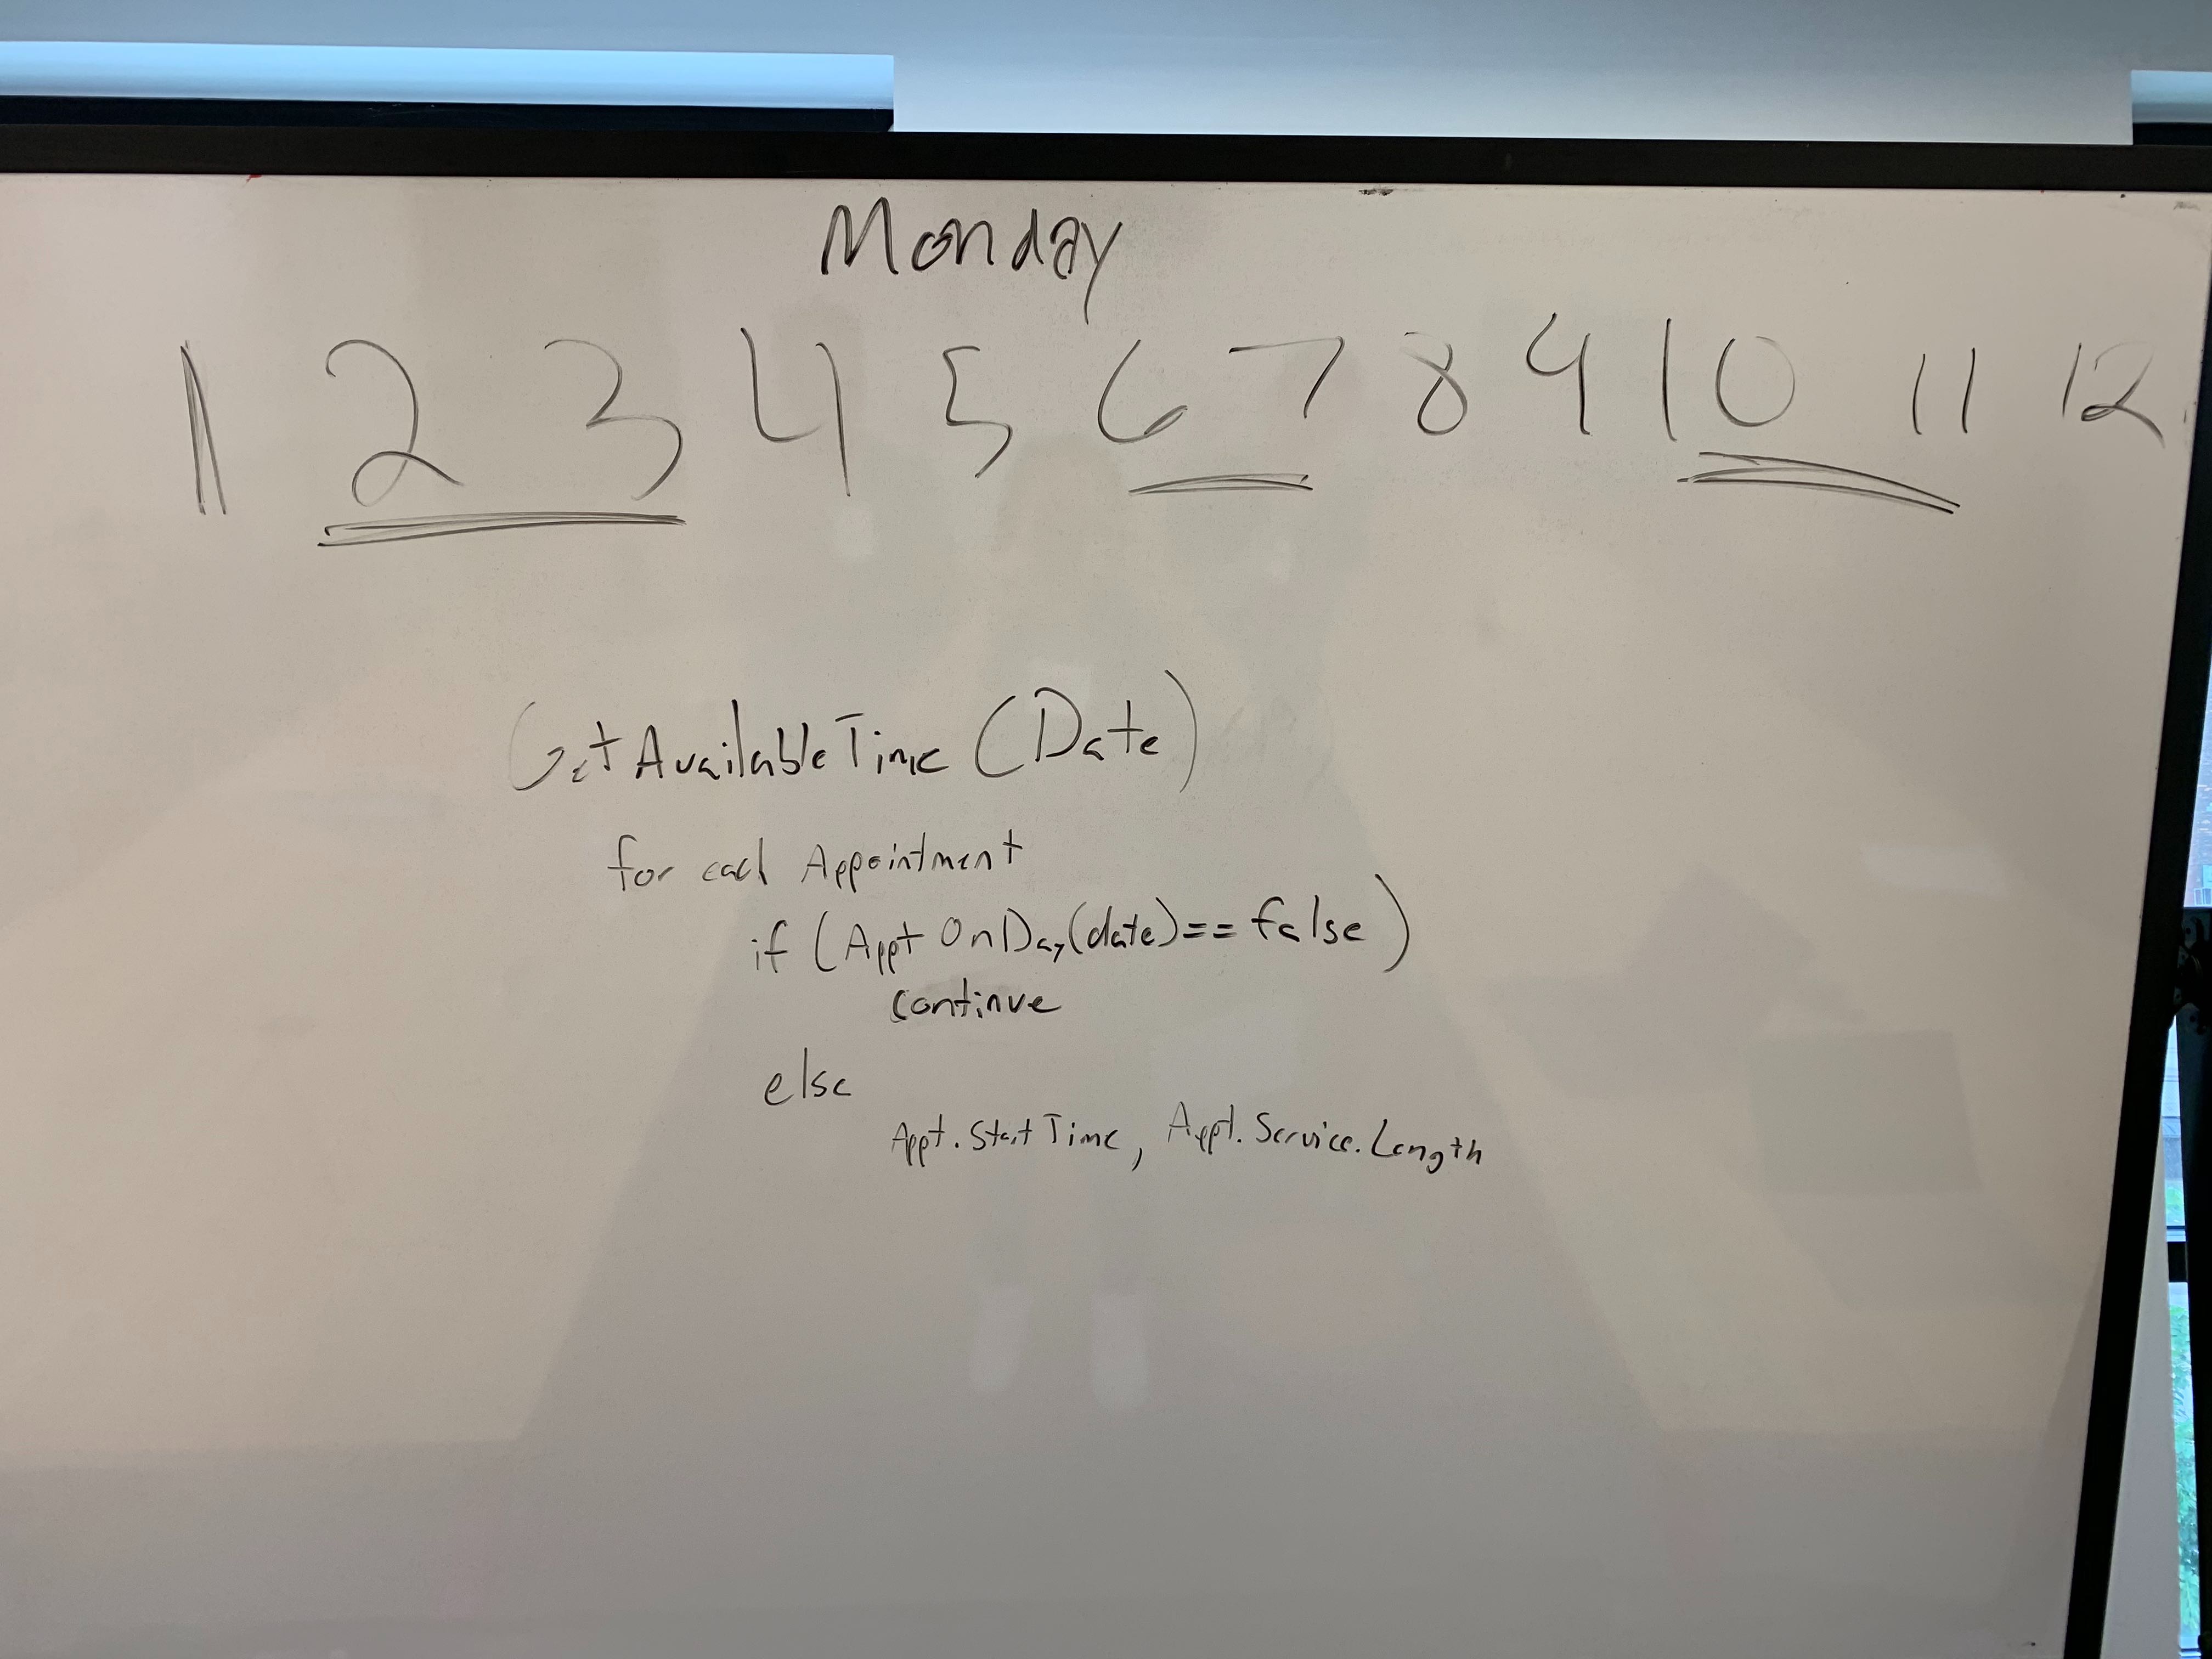 Monday
1 2 3 4 5 6 7 8 9 10 11 12
GetAvailableTime (Date)
for each Appointment
if (Appt OnDay(date)== false)
continue
else
Appt.StartTime, Appt.Service.Length